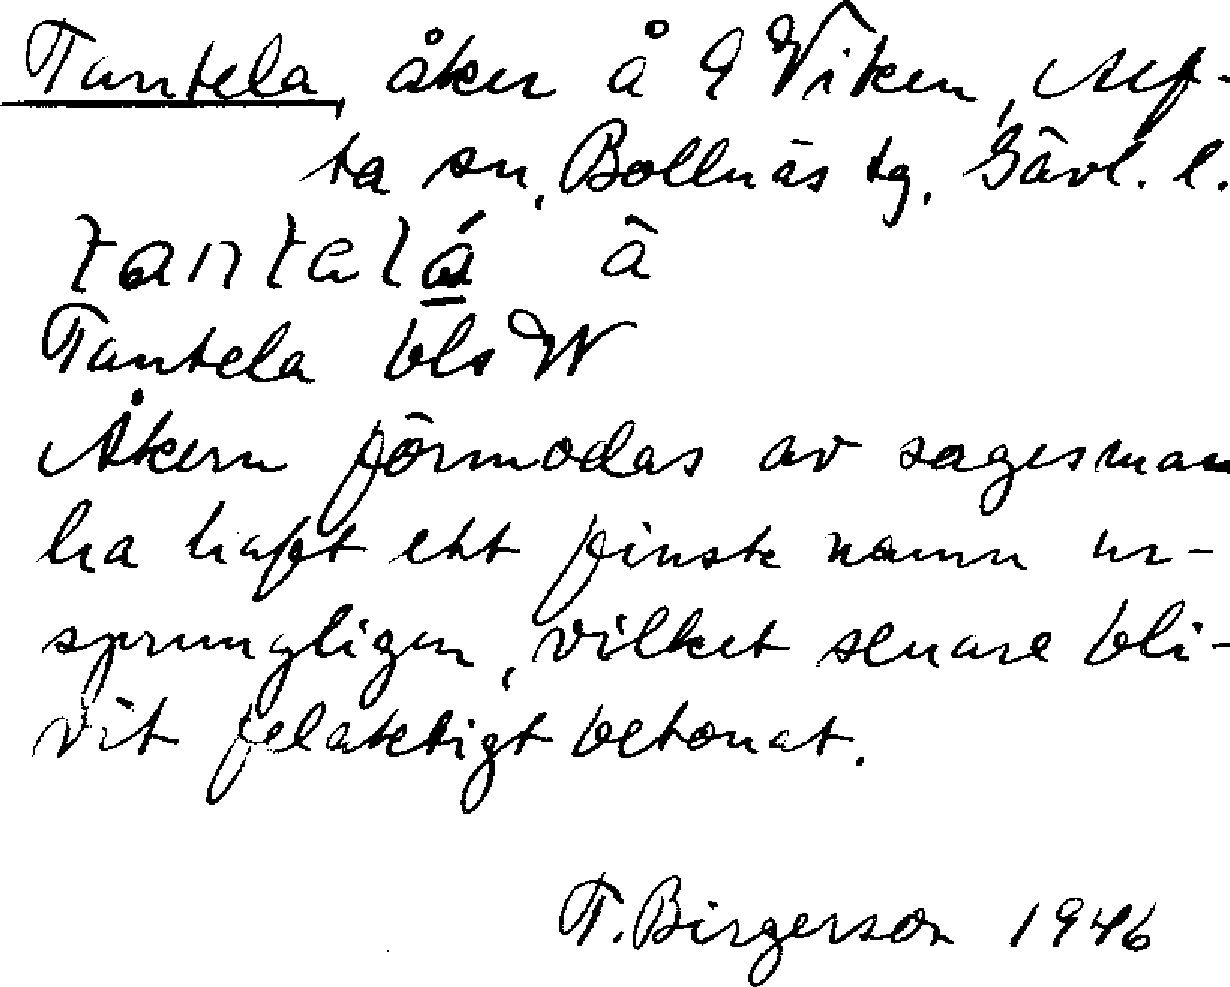 Tantela, åker å 9 Viken, Alf-
ta sn, Bollnäs tg. Gävl. l.
tantelá å
Tantela bls W
Åkern förmodas av sagesman
ha haft ett finsk namn ur-
sprungligen, vilket senare bli-
vit felaktigt betonat.
T. Birgerson 1946